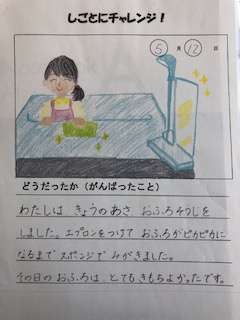 しごとにチャレンジ！
5月12日
どうだったか（がんばったこと）
わたしは きょうのあさ おふろそうじを
しました。エプロンをつけて おふろがピカピカに
なるまで スポンジで みがきました。
その日の おふろは、とてもきもちよかったです。